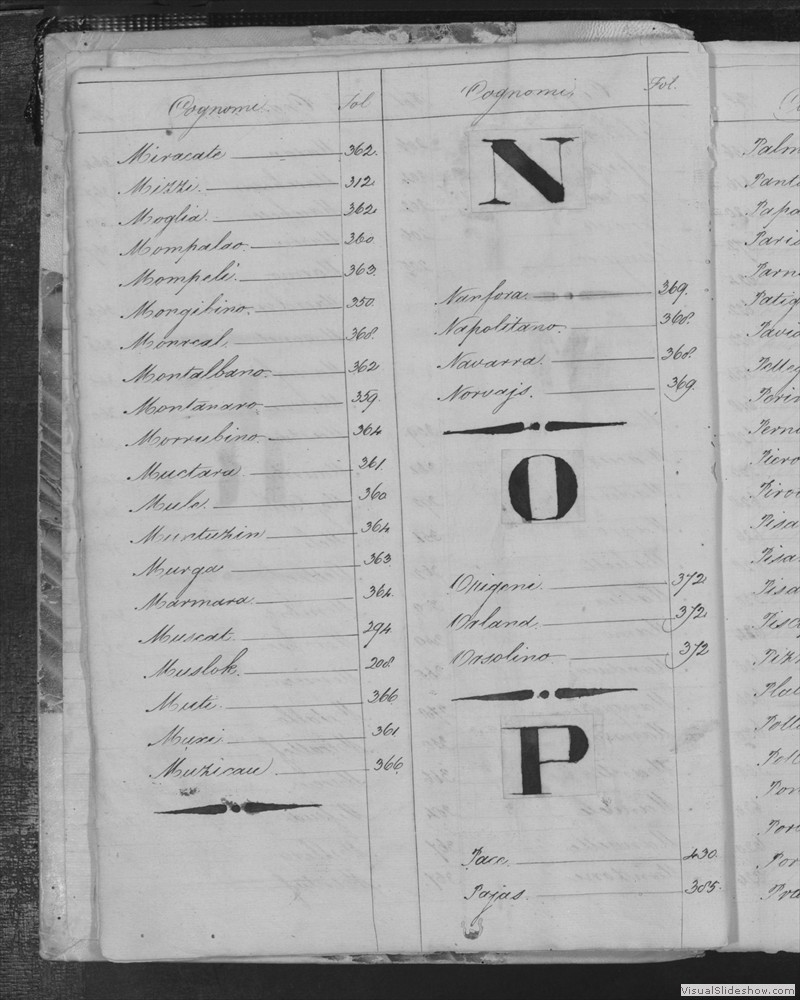 Cognomi. Fol.
Miracate 362.
Mizzi. 312.
Moglia. 362.
Mompalao. 360.
Mompelè. 363.
Mongibino. 350.
Monreal. 368.
Montalbano. 362
Montanaro 359.
Morrubino. 364
Muctara 361.
Mule. 360
Muntuzin 364
Murga 363
Marmara 364.
Muscat. 294.
Muslok. 208.
Muti. 366
Muxi 361
Muzicau 366.
Cognomi. Fol.
N
Nanfora. 369.
Napolitano. 368.
Navarra. 368.
Norvajs. 369.
O
Origeni 372
Orland. 372
Orsolino 372
P
Pace. 430.
Pajas. 385.
Palm
Pant
Papa
Paris
Parn
Patig
Pavia
Pelleg
Perin
Perni
Piero
Piro
Pisa
Pisa
Pisa
Pisa
Pizz
Pla
Poll
Poll
Pon
Por
Por
Pra
VisualSlideshow.com